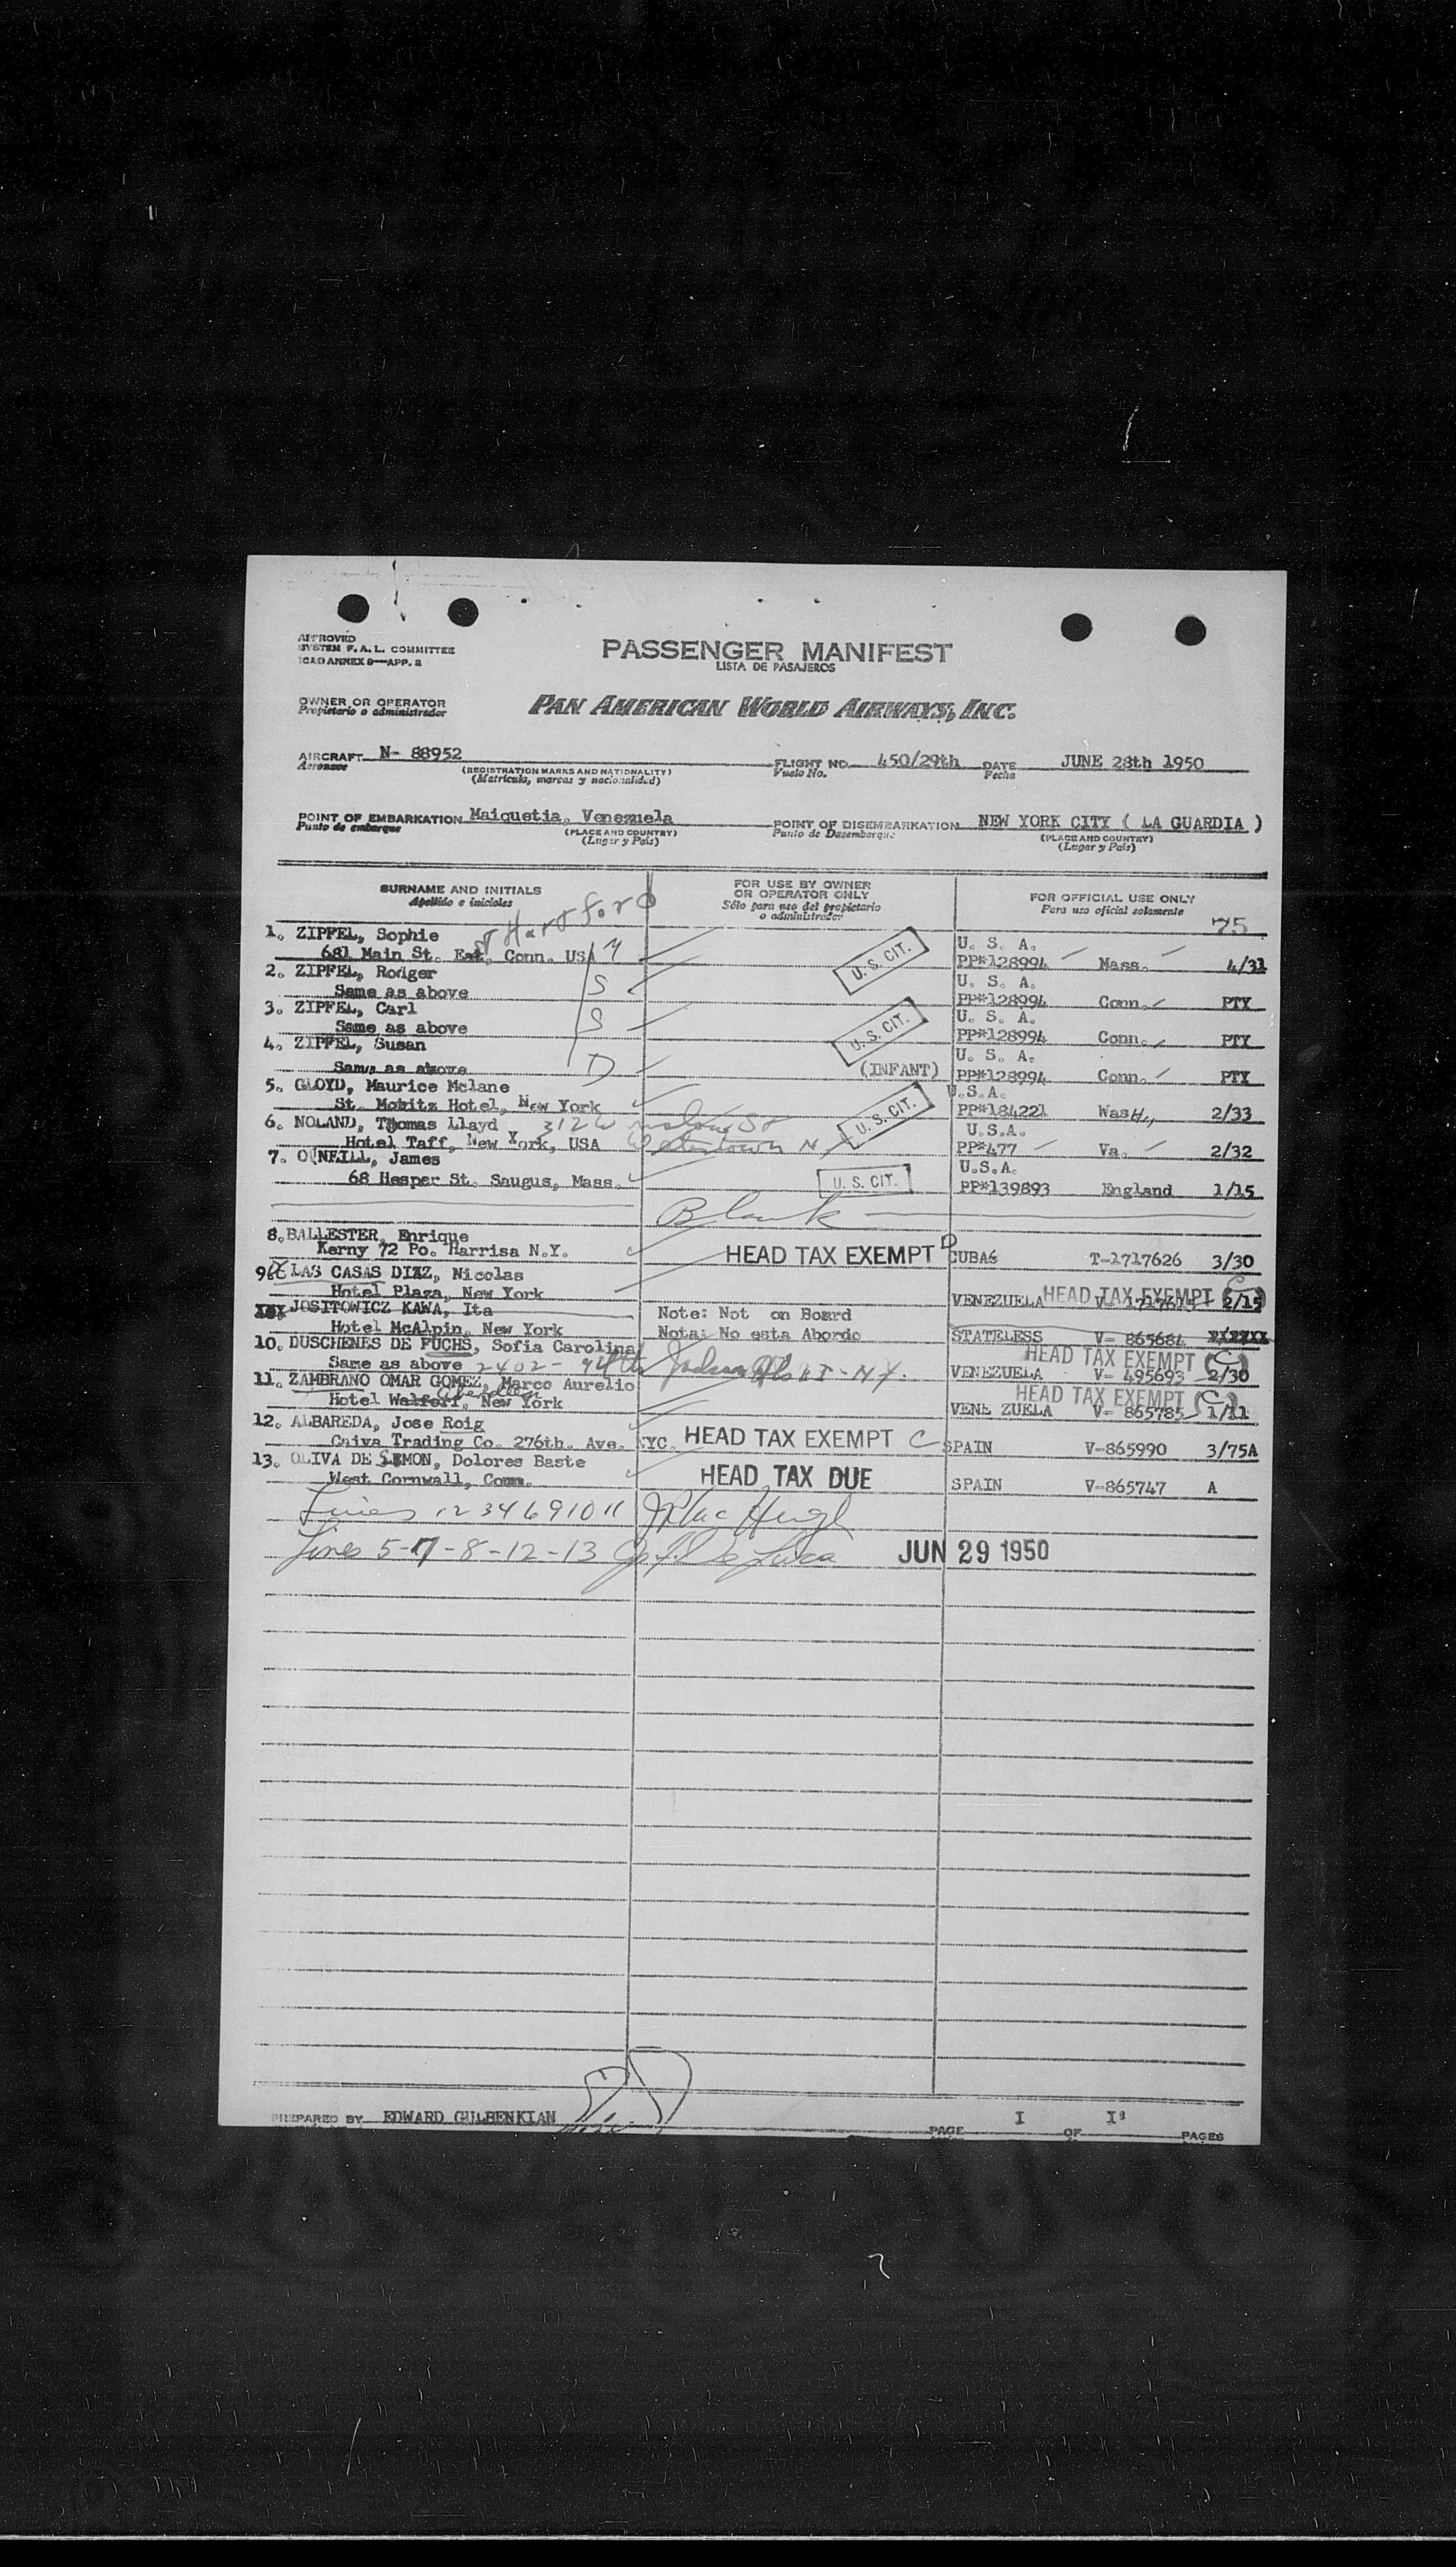 APPROVED
SYSTEM F.A.L. COMMITTEE
ICAO ANNEX 9—APP. 2
PASSENGER MANIFEST
LISTA DE PASAJEROS
OWNER OR OPERATOR
Propietario o administrador
PAN AMERICAN WORLD AIRWAYS, INC.
AIRCRAFT N- 88952 FLIGHT NO. 450/29th DATE JUNE 28th 1950
Aeronave (REGISTRATION MARKS AND NATIONALITY) Vuelo No. Fecha
(Matrícula, marcas y nacionalidad)
POINT OF EMBARKATION Maiquetia, Venezuela POINT OF DISEMBARKATION NEW YORK CITY ( LA GUARDIA )
Punto de embarque (PLACE AND COUNTRY) Punto de Desembarque (PLACE AND COUNTRY)
(Lugar y País) (Lugar y País)
SURNAME AND INITIALS FOR USE BY OWNER OR OPERATOR ONLY FOR OFFICIAL USE ONLY
Apellido e iniciales Sólo para uso del propietario o administrador Para uso oficial solamente
75
Hartford
1. ZIPFEL, Sophie U. S. A.
681 Main St. East, Conn. USA M U. S. CIT. PP#128994 Mass. 4/31
2. ZIPFEL, Rodger U. S. A.
Same as above S PP#128994 Conn. PTY
3. ZIPFEL, Carl U. S. A.
Same as above S U. S. CIT. PP#128994 Conn. PTY
4. ZIPFEL, Susan U. S. A.
Same as above D (INFANT) PP#128994 Conn. PTY
5. GLOYD, Maurice Mclane U.S.A.
St. Moritz Hotel, New York U. S. CIT. PP#184221 Wash. 2/33
6. NOLAND, Thomas Llayd 312 W St U.S.A.
Hotel Taff, New York, USA Watertown N.Y. PP#477 Va. 2/32
7. O'NEILL, James U.S.A.
68 Hesper St. Saugus, Mass. U. S. CIT. PP#139893 England 1/15
Blank
8. BALLESTER, Enrique
Kerny 72 Po. Harrisa N.Y. HEAD TAX EXEMPT D CUBAS T-1717626 3/30
9. DE LAS CASAS DIAZ, Nicolas
Hotel Plaza, New York VENEZUELA HEAD TAX EXEMPT (C) 2/15
JOSITOWICZ KAWA, Ita Note: Not on Board
Hotel McAlpin, New York Nota: No esta Abordo STATELESS V- 865684
10. DUSCHENES DE FUCHS, Sofia Carolina HEAD TAX EXEMPT (C)
Same as above 2402-94th Jackson Hts LI-NY. VENEZUELA V- 495693 2/30
11. ZAMBRANO OMAR GOMEZ, Marco Aurelio HEAD TAX EXEMPT (C)
Hotel Aberdeen, New York VENE ZUELA V- 865785 1/11
12. ALBAREDA, Jose Roig
Caiva Trading Co. 276th. Ave. NYC. HEAD TAX EXEMPT C SPAIN V-865990 3/75A
13. OLIVA DE SIMON, Dolores Baste
West Cornwall, Conn. HEAD TAX DUE SPAIN V-865747 A
Lines 1 2 3 4 6 9 10 11
Lines 5-7-8-12-13 JUN 29 1950
PREPARED BY EDWARD GULBENKIAN PAGE I OF I PAGES